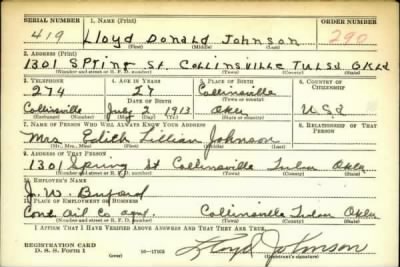 SERIAL NUMBER 1. NAME (Print) ORDER NUMBER
419 Lloyd Donald Johnson 290
(First) (Middle) (Last)
2. ADDRESS (Print)
1301 Spring St. Collinsville Tulsa Okla
(Number and street or R. F. D. number) (Town) (County) (State)
3. TELEPHONE 4. AGE IN YEARS 5. PLACE OF BIRTH 6. COUNTRY OF CITIZENSHIP
274 27 Collinsville
(Town or county)
DATE OF BIRTH
Collinsville July 2 1913 Okla U.S.A
(Exchange) (Number) (Mo.) (Day) (Yr.) (State or country)
7. NAME OF PERSON WHO WILL ALWAYS KNOW YOUR ADDRESS 8. RELATIONSHIP OF THAT PERSON
Mrs Edith Lillian Johnson
(Mr., Mrs., Miss) (First) (Middle) (Last)
9. ADDRESS OF THAT PERSON
1301 Spring St Collinsville Tulsa Okla
(Number and street or R. F. D. number) (Town) (County) (State)
10. EMPLOYER'S NAME
J. W. Buford
11. PLACE OF EMPLOYMENT OR BUSINESS
Cont oil Co Collinsville Tulsa Okla
(Number and street or R. F. D. number) (Town) (County) (State)
I AFFIRM THAT I HAVE VERIFIED ABOVE ANSWERS AND THAT THEY ARE TRUE.
REGISTRATION CARD
D. S. S. Form 1 Lloyd Johnson
(Registrant's signature)